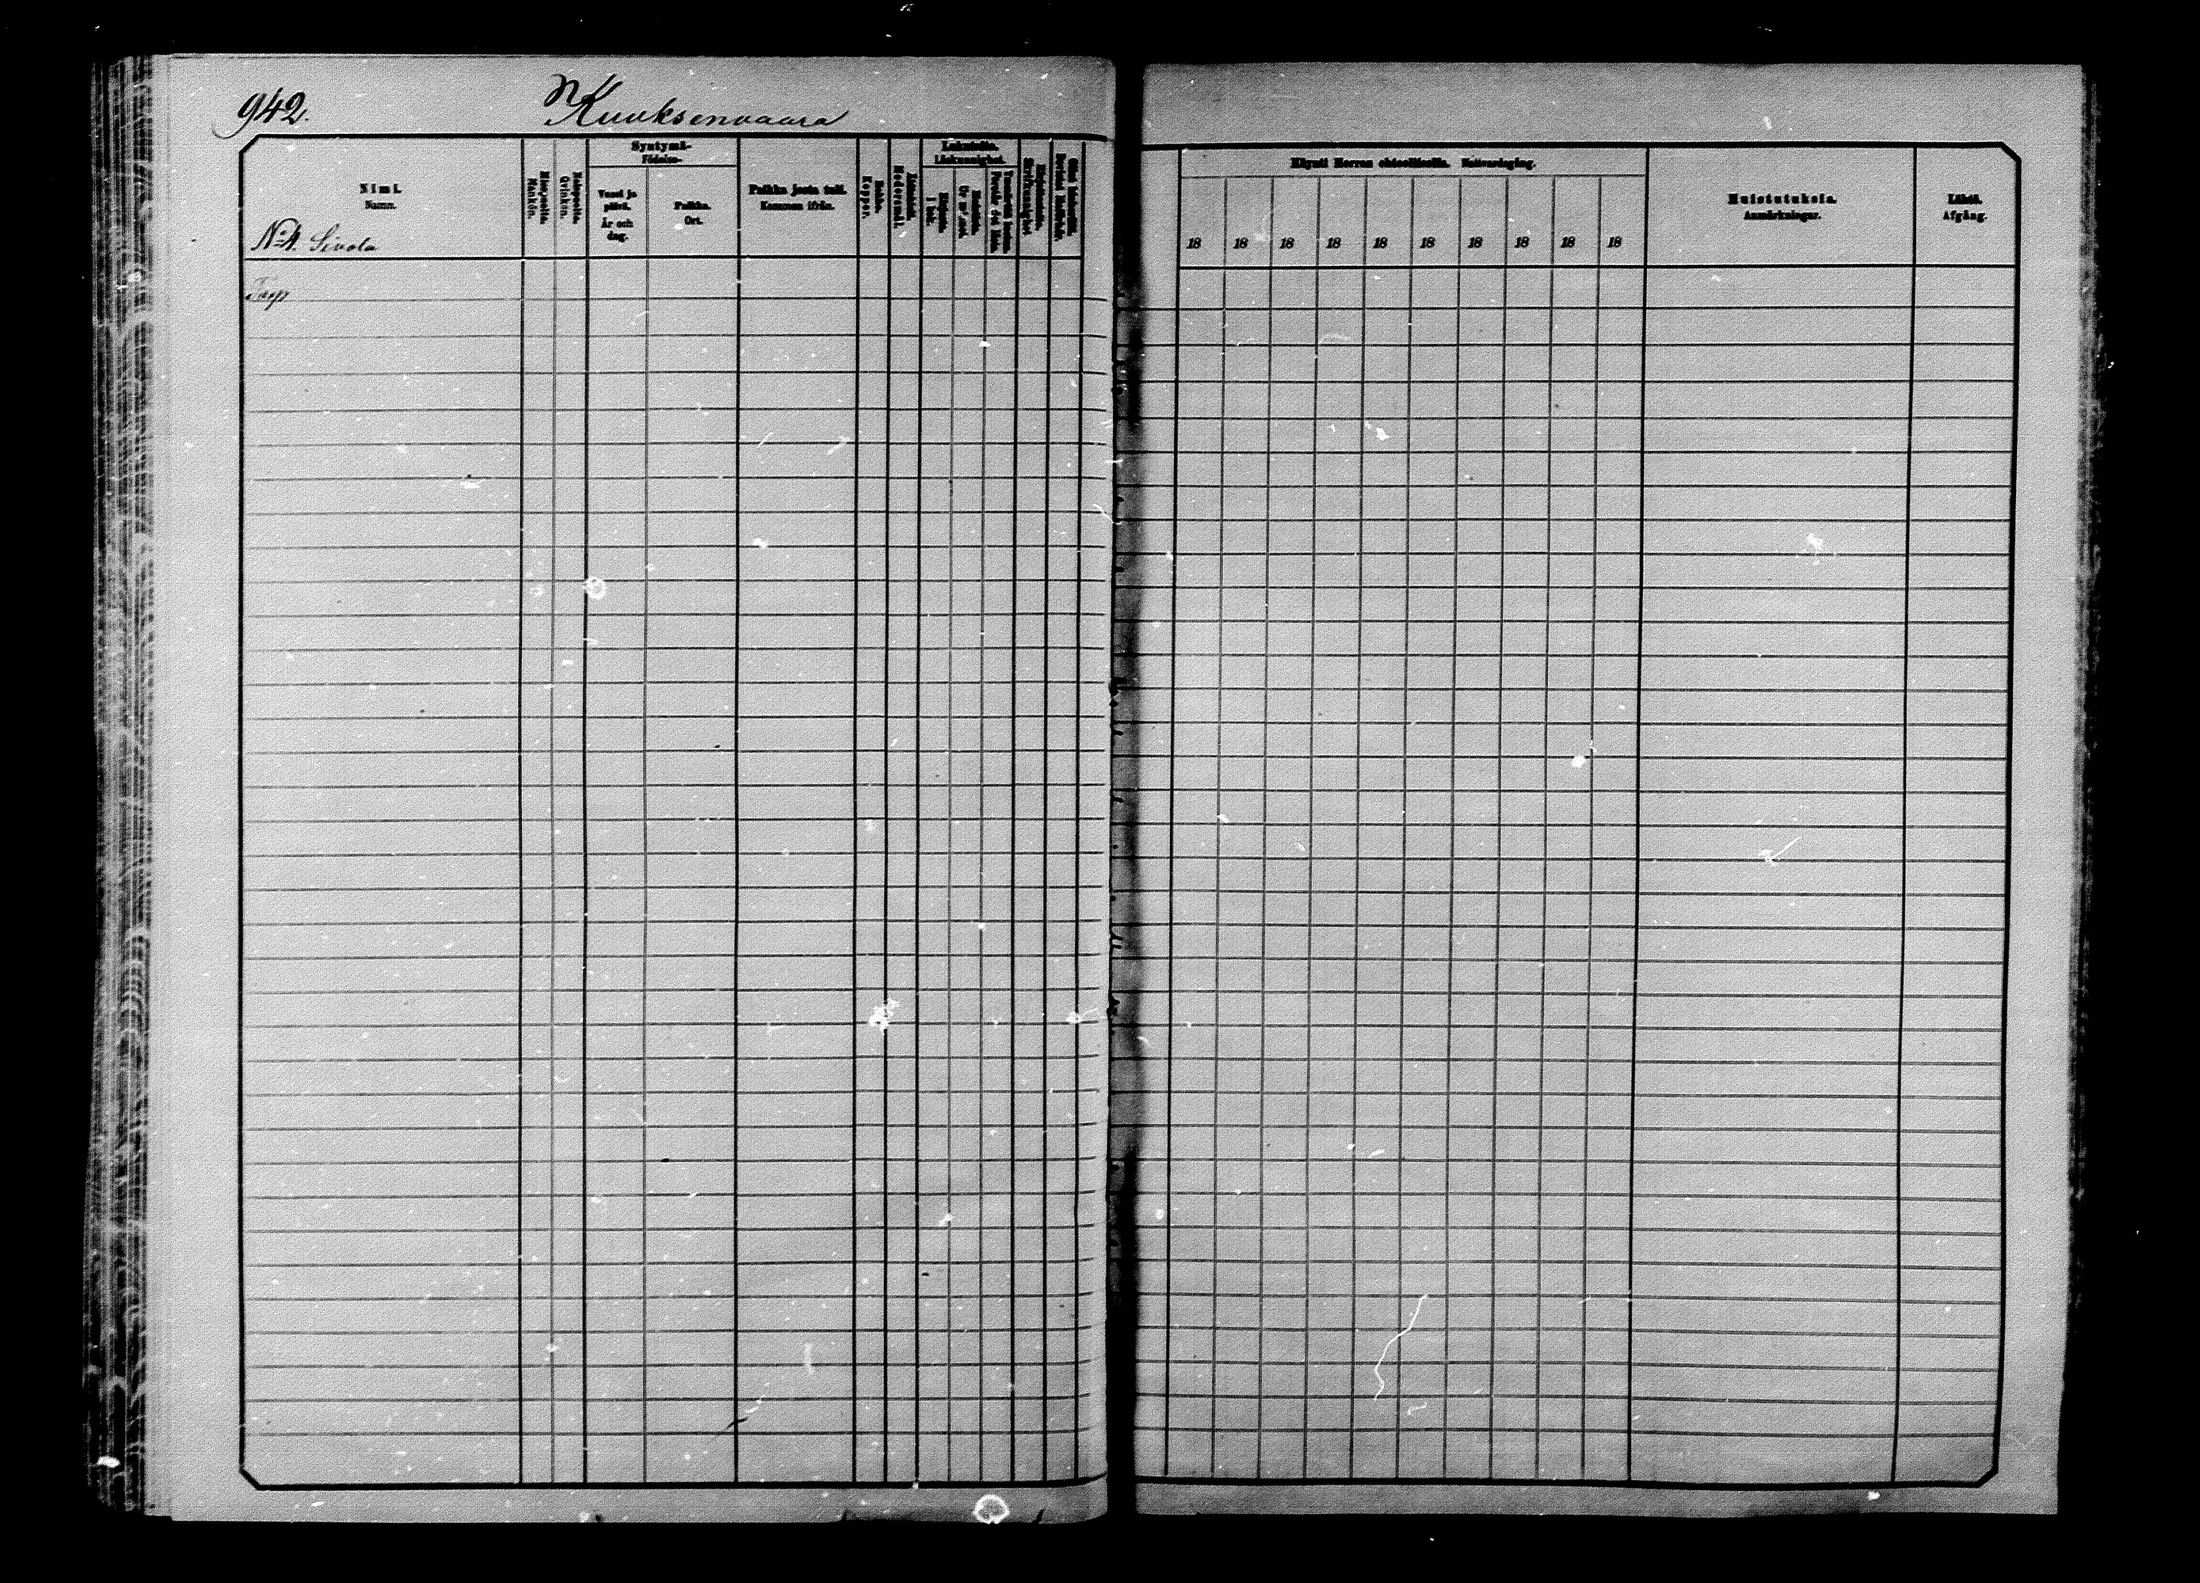 942.
Kuuksenvaara
Nimi.
Namn.
Miespuolia.
Mankön.
Naispuolia.
Qvinkön.
Syntymä-
Födelse-
Vuosi ja
päivä.
År och
dag.
Paikka.
Ort.
Paikka josta tuli.
Kommen ifrån.
Rokko.
Koppor.
Lukutaito.
Läskunnighet.
Käynti Herran ehtoollisella. Nattvardsgång.
18 18 18 18 18 18 18 18 18 18
Muistutuksia.
Anmärkningar.
Lähtö.
Afgång.
No 4. Sivola